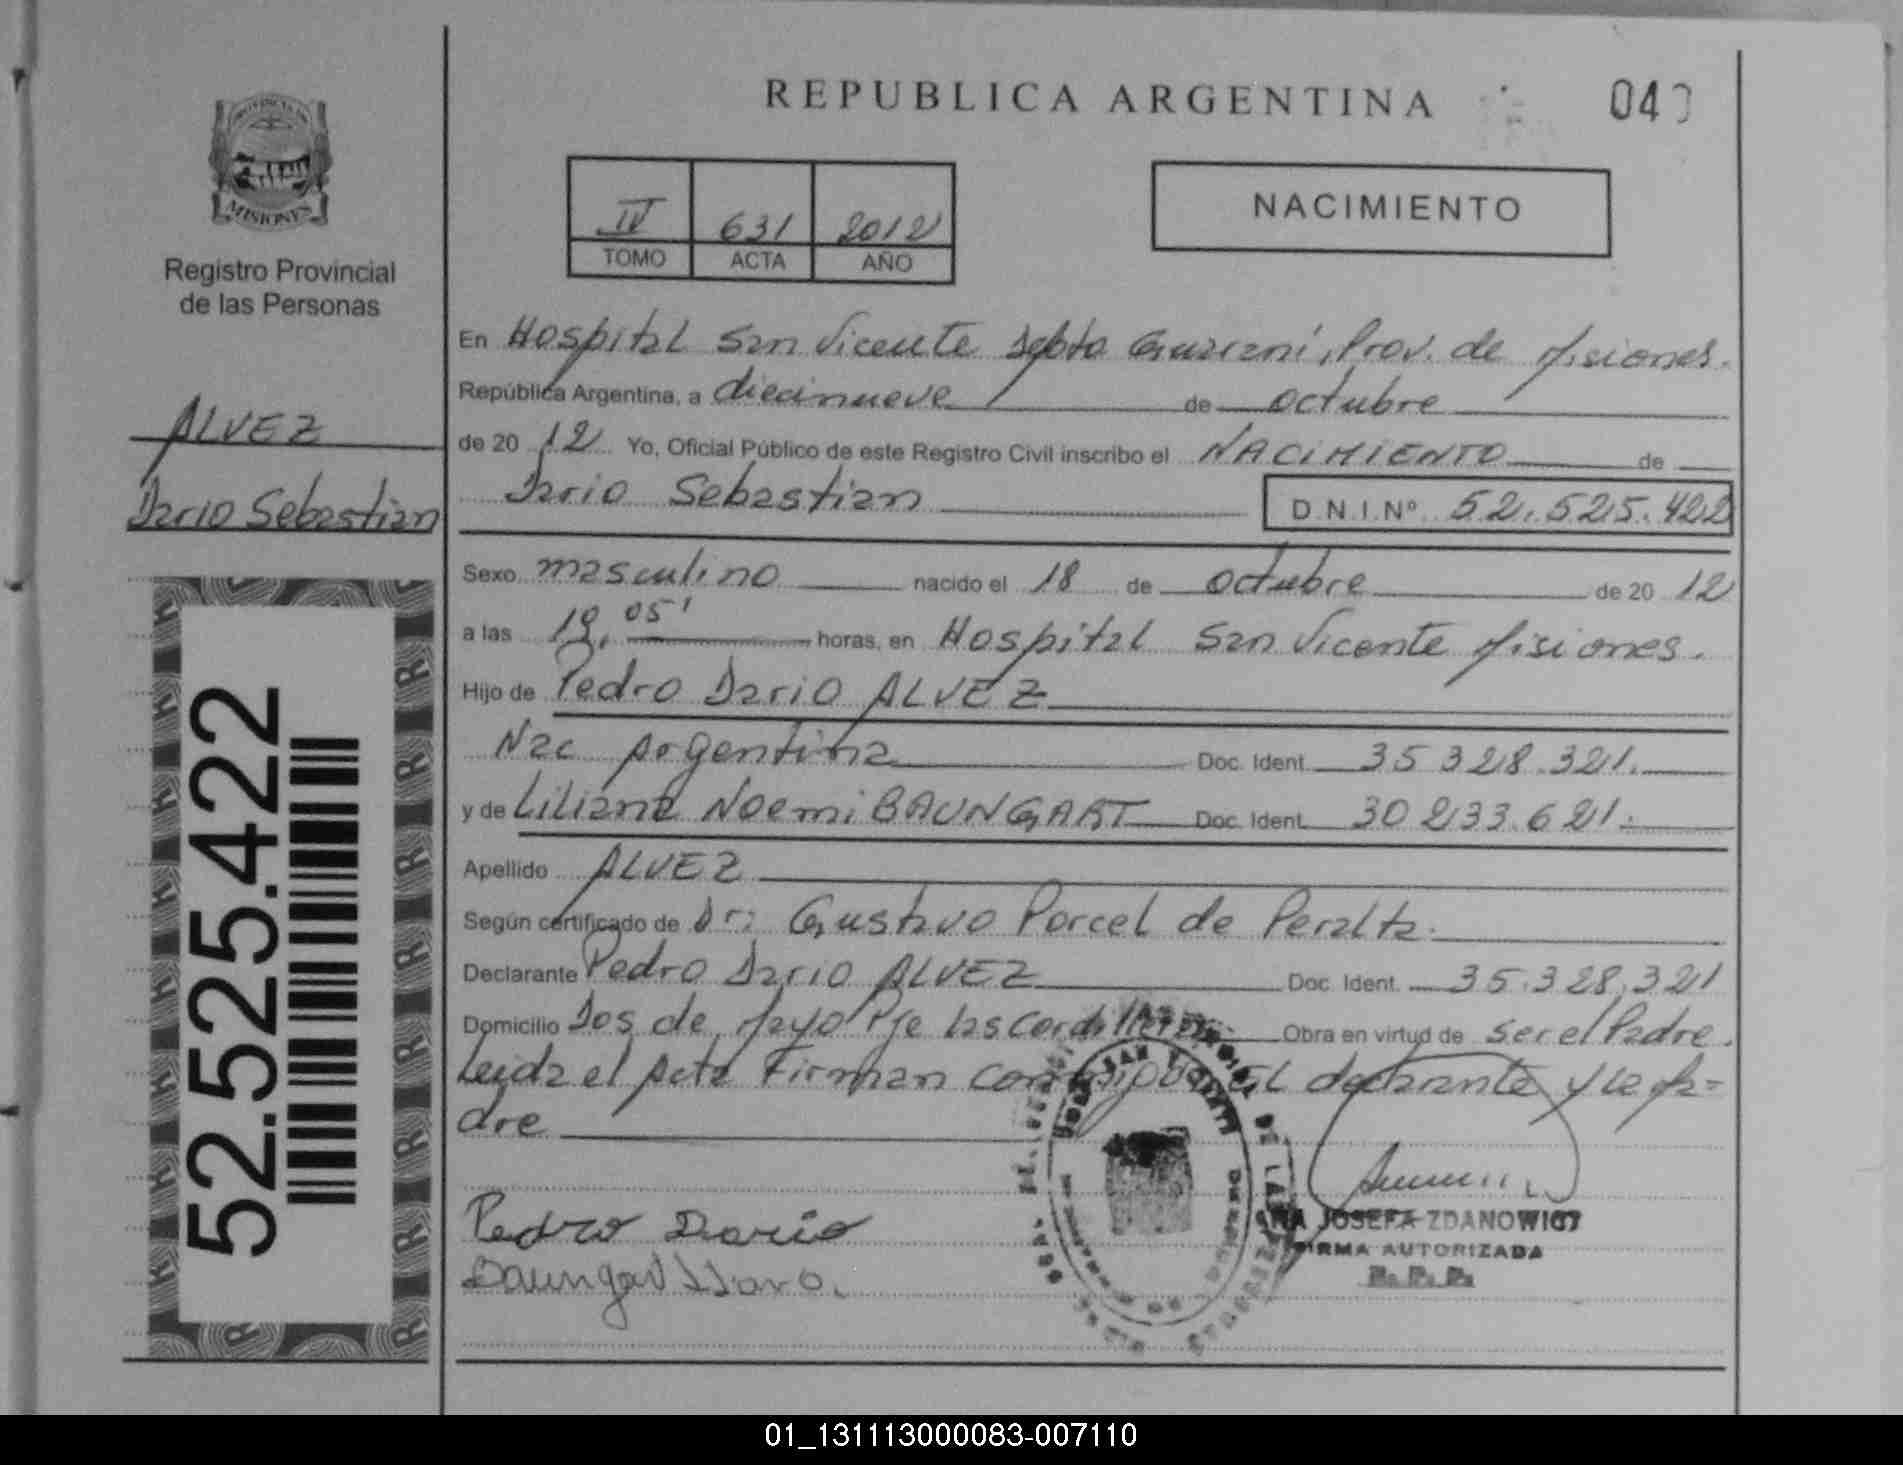 REPUBLICA ARGENTINA
04
PROVINCIA DE
MISIONES
Registro Provincial
de las Personas
IV 631 2012
TOMO ACTA AÑO
NACIMIENTO
ALVEZ
Dario Sebastian
52.525.422
En Hospital San Vicente Depto Guarani, Prov. de Misiones.
República Argentina, a diecinueve de octubre
de 20 12 Yo, Oficial Público de este Registro Civil inscribo el NACIMIENTO de
Dario Sebastian D.N.I.Nº 52.525.422
Sexo masculino nacido el 18 de octubre de 20 12
a las 19,05' horas, en Hospital San Vicente Misiones.
Hijo de Pedro Dario ALVEZ
Nac Argentina Doc. Ident. 35 328.321.
y de Liliana Noemi BAUNGART Doc. Ident. 30 233.621.
Apellido ALVEZ
Según certificado de Dr: Gustavo Porcel de Peralta.
Declarante Pedro Dario ALVEZ Doc. Ident. 35.328.321
Domicilio Dos de Mayo Pje las Cordilleras Obra en virtud de ser el Padre.
Leida el Acta Firman conmigo EL declarante y la Ma=
dre
Pedro Dario
JOSEFA ZDANOWICZ
FIRMA AUTORIZADA
R. P. P.
01_131113000083-007110